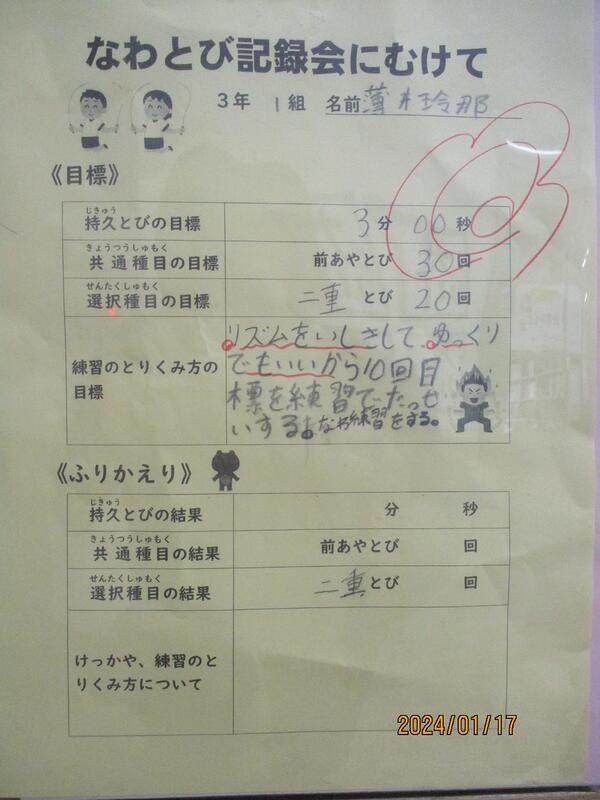 なわとび記録会にむけて
3年 1組 名前 薄井玲那
《目標》
じきゅう
持久とびの目標 3分 00秒
きょうつうしゅもく
共通種目の目標 前あやとび 30回
せんたくしゅもく
選択種目の目標 二重とび 20回
リズムをいしきして、ゆっくり
練習のとりくみ方の でもいいから10回目
目標 標を練習でたっせ
いする。なわ練習をする。
《ふりかえり》
じきゅう
持久とびの結果 分 秒
きょうつうしゅもく
共通種目の結果 前あやとび 回
せんたくしゅもく
選択種目の結果 二重とび 回
けっかや、練習のと
りくみ方について
2024/01/17